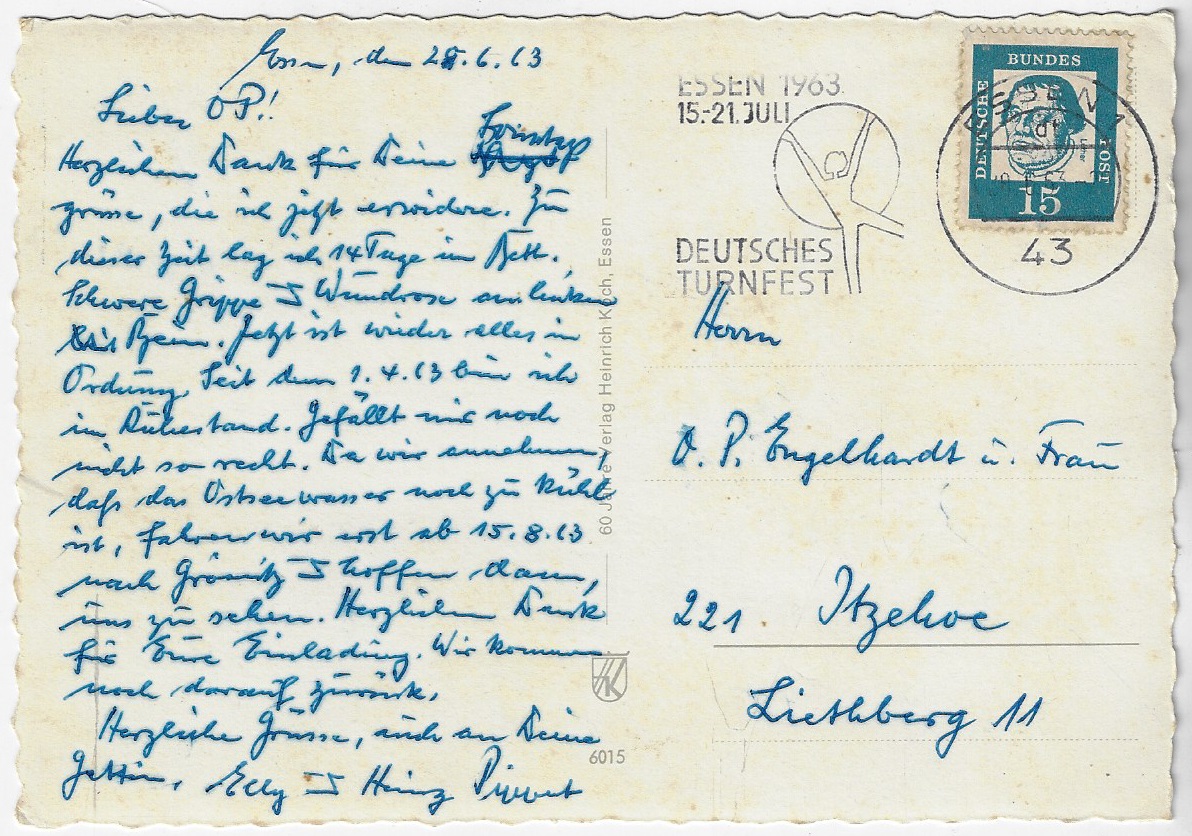 Essen, den 28.6.63
Lieber OP!
Herzlichen Dank für Deine Sonntags
grüsse, die ich jetzt erwidere. Zu
dieser Zeit lag ich 14 Tage im Bett.
Schwere Grippe u. Wundrose am linken
Bein. Jetzt ist wieder alles in
Ordnung. Seit dem 1.4.63 bin ich
im Ruhestand. Gefällt mir noch
nicht so recht. Da wir annehmen,
daß das Ostseewasser noch zu kühl
ist, fahren wir erst ab 15.8.63
nach Grömitz u. hoffen dann,
uns zu sehen. Herzlichen Dank
für Eure Einladung. Wir kommen
noch darauf zurück.
Herzliche Grüsse, auch an Deine
Gattin, Elly u. Heinz
60 Jahre Verlag Heinrich Koch, Essen
HK
6015
ESSEN 1963
15.-21. JULI
DEUTSCHES
TURNFEST
DEUTSCHE
BUNDES
POST
15
ESSEN 1
43
Herrn
O. P. Engelhardt u. Frau
221 Itzehoe
Liethberg 11